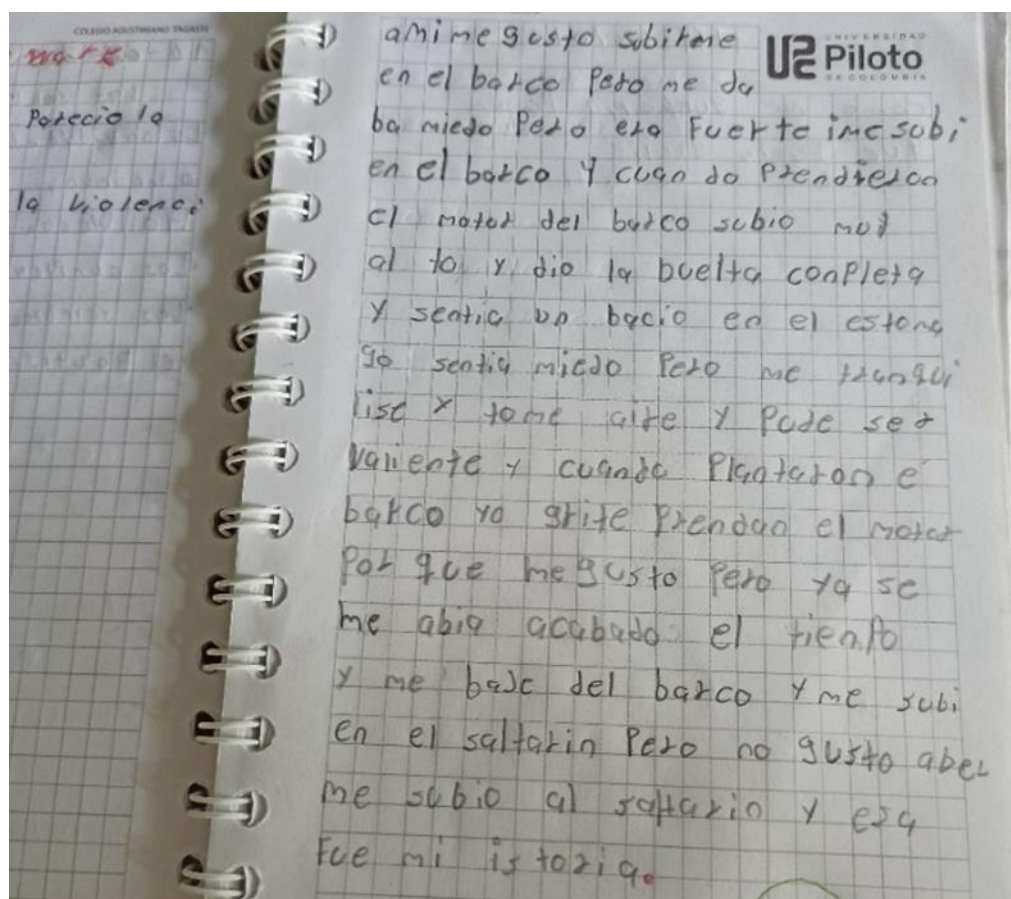 COLEGIO AGUSTINIANO TAGASTE
work
Parecio la
la violenci
UNIVERSIDAD
Piloto
DE COLOMBIA
amimegusto subirme
en el barco Pero me da
ba miedo Pero era Fuerte ime subi
en el barco Y cuan do Prendieron
el motor del barco subio mui
al to y dio la buelta conpleta
y sentia un bacio en el estoma
go sentia miedo Pero me tranqui
lise y tome aire y Pude ser
valiente y cuando Plantaron e
barco yo grite Prendan el motor
Por que megusto Pero ya se
me abia acabado el tienpo
y me baje del barco y me subi
en el saltarin Pero no gusto aber
me subio al saltario y esa
Fue mi is toria.